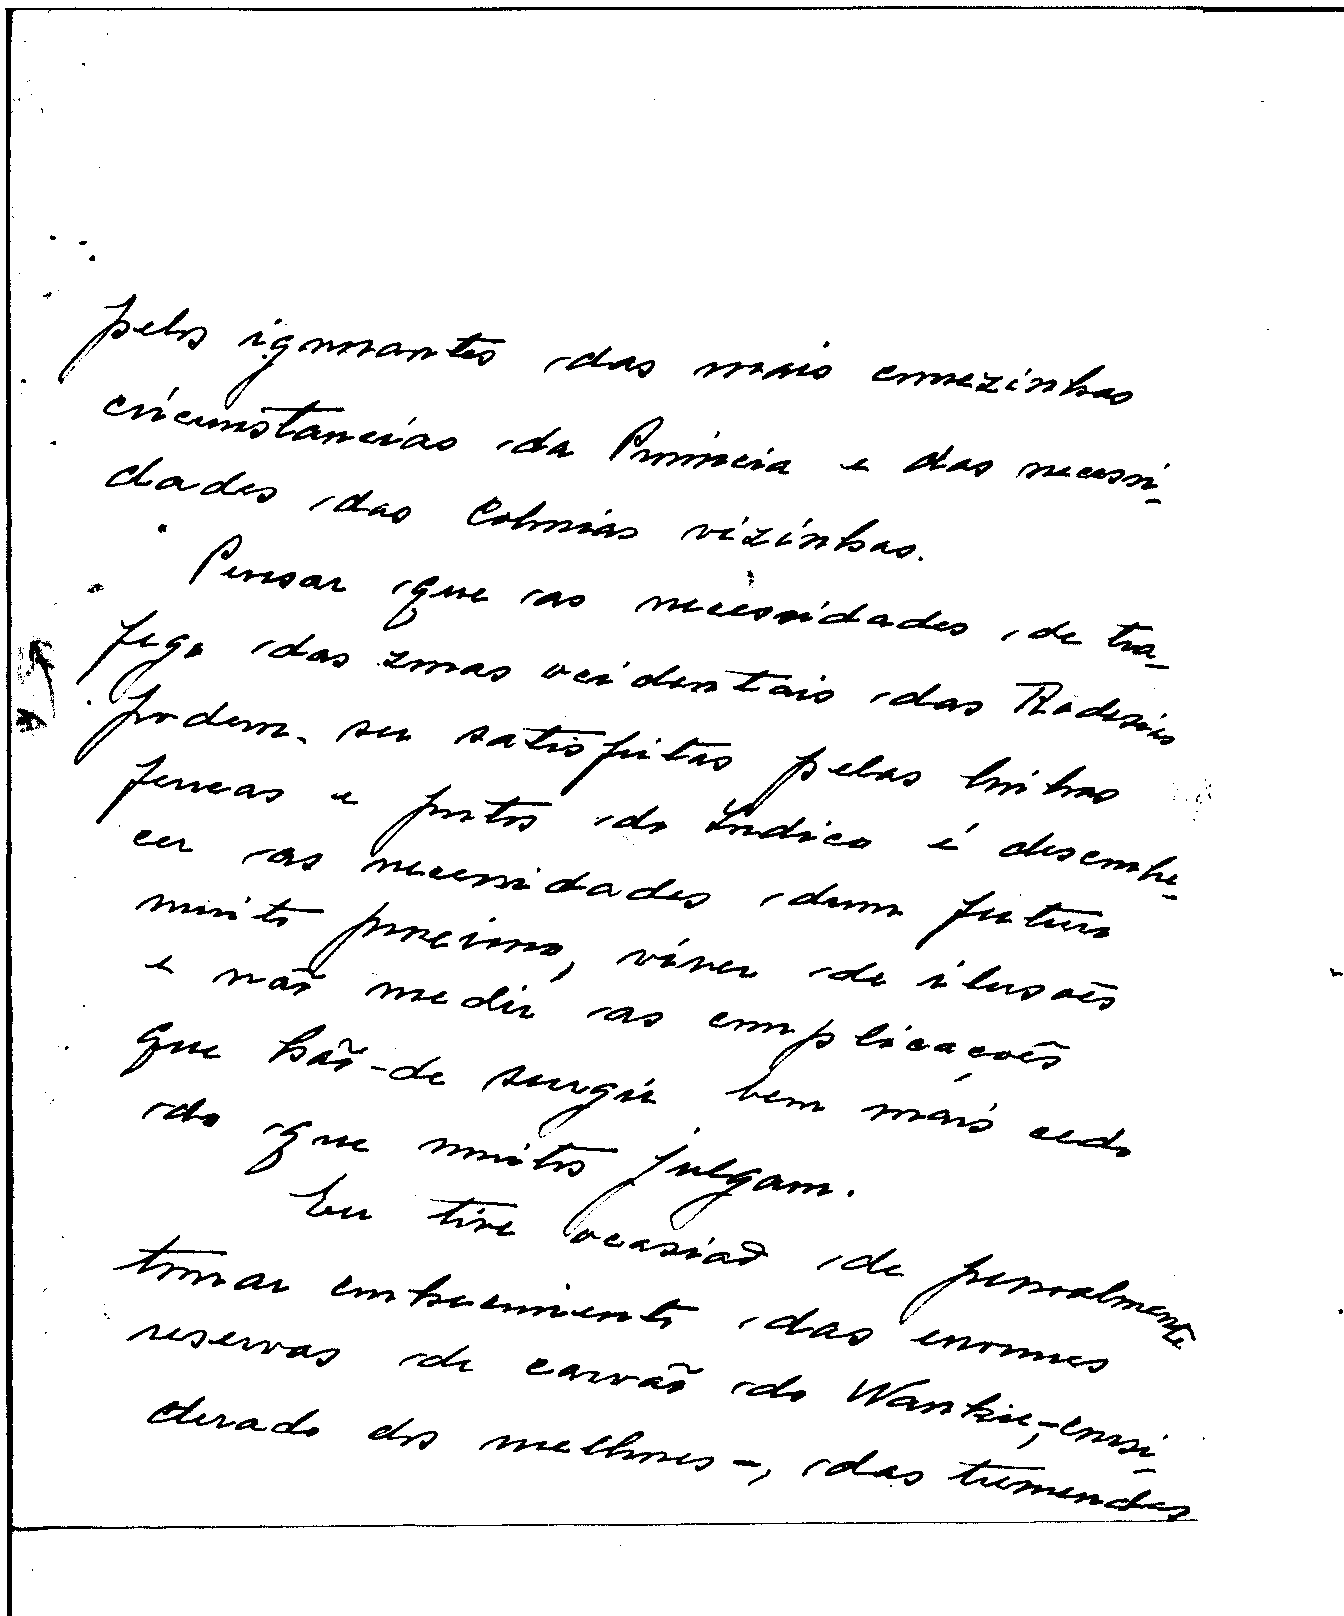 pelos ignorantes das mais comezinhas
circunstancias da Provincia e das necessi-
dades das Colonias vizinhas.
Pensar que as necessidades de tra-
fego das zonas ocidentais das Rodesias
podem ser satisfeitas pelas linhas
ferreas e portos do Indico é desconhe-
cer as necessidades dum futuro
muito proximo, viver de ilusões
e não medir as complicações
que hão-de surgir bem mais cedo
do que muitos julgam.
Eu tive ocasião de pessoalmente
tomar conhecimento das enormes
reservas de carvão do Wankie, -consi-
derado dos melhores-, das tremendas